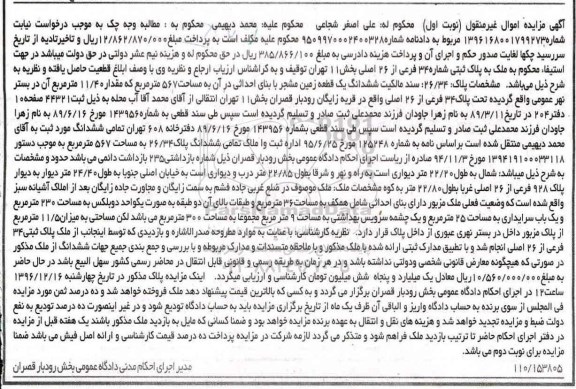 آگهی مزایده اموال غیرمنقول (نوبت اول) محکوم له: علی اصغر شجاعی محکوم علیه: محمد دیهیمی. محکوم به : مطالبه وجه چک به موجب درخواست نیابت
شماره ۱۳۹۶۱۶۸۰۰۰۱۷۹۹۲۷۳ مربوط به دادنامه شماره ۹۵۰۹۹۷۰۰۰۲۴۰۰۳۲۸ محکوم علیه مکلف است به پرداخت مبلغ ۱۲/۸۶۲/۸۷۰/۰۰۰ ریال و تاخیرتادیه از تاریخ
سررسید چکها لغایت صدور حکم و اجرای آن و پرداخت هزینه دادرسی به مبلغ ۳۸۵/۸۶۶/۱۰۰ ریال در حق محکوم له و هزینه نیم عشر دولتی در حق دولت میباشد در جهت
استیفاء محکوم به ملک به پلاک ثبتی شماره ۳۴ فرعی از ۲۶ اصلی بخش ۱۱ تهران توقیف و به کارشناس ارزیاب ارجاع و نظریه وی با وصف ابلاغ قطعیت حاصل یافته و نظریه به
شرح ذیل میباشد. مشخصات پلاک: ۲۶/۳۴؛ سند مالکیت ششدانگ یک قطعه زمین مشجر با بنای احداثی در آن به مساحت ۵۶۷ مترمربع که مقدار ۱۱/۴۰ مترمربع آن در بستر
نهر عمومی واقع گردیده تحت پلاک ۳۴ فرعی از ۲۶ اصلی واقع در قریه زایگان رودبار قصران بخش ۱۱ تهران انتقالی از آقای محمد آقا آب محله به ذیل ثبت ۴۴۳۲۱ صفحه ۱۰
دفتر ۲۰۴ در تاریخ ۸۹/۳/۱۱ به نام زهرا جاودان فرزند محمدعلی ثبت صادر و تسلیم گردیده است سپس طی سند قطعی به شماره ۱۴۳۹۵۶ مورخ ۸۹/۶/۱۶ به نام زهرا
جاودان فرزند محمدعلی ثبت صادر و تسلیم گردیده است سپس طی سند قطعی بشماره ۱۴۳۹۵۶ مورخ ۸۹/۶/۱۶ دفترخانه ۶۰۸ تهران تمامی ششدانگ مورد ثبت به آقای
محمد دیهیمی منتقل شده است براساس نامه به شماره ۱۲۵۲۴۸ مورخ ۹۵/۶/۲۵ اداره ثبت و املاک تمامی ششدانگ پلاک ۲۶/۳۴ به مساحت ۵۶۷ مترمربع به موجب دستور
۱۳۹۴۱۹۱۰۰۰۳۳۱۱۸ مورخ ۹۴/۱۱/۳ صادره از ریاست اجرای احکام دادگاه عمومی بخش رودبار قصران ذیل شماره بازداشتی ۲۳۵ بازداشت دائمی می باشد حدود و مشخصات
به شرح ذیل میباشد: شمال به طول ۲۲/۲۰ متر دیواری است به راه و نهر و شرقا بطول ۲۲/۸۵ متر درب و دیواری است به خیابان اصلی جنوبا به طول ۲۴/۴۰ متر دیوار به دیوار
پلاک ۹۲۸ فرعی از ۲۶ اصلی غربا بطول ۲۲/۸۰ متر به کوه مشخصات ملک: ملک موصوف در ضلع غربی جاده فشم به سمت زایگان و مجاورت جاده زایگان بعد از املاک آشیانه سبز
واقع شده است که وضعیت فعلی ملک مزبور دارای بنای احداثی شامل همکف به مساحت ۳۶ مترمربع و طبقات بالای آن دو طبقه به صورت یکواحد دوبلکس به مساحت ۲۳۰ مترمربع
و یک باب سرایداری به مساحت ۲۵ مترمربع و یک چشمه سرویس بهداشتی به مساحت ۹ مترمربع مجموعا به مساحت ۳۰۰ مترمربع می باشد لکن مساحتی به میزان ۱۱/۵ مترمربع
از پلاک مزبور داخل در بستر نهری عبوری از داخل پلاک قرار دارد. نظریه کارشناسی: با عنایت به موارد مطروحه صدرالاشاره و بازدیدی که توسط اینجانب از ملک پلاک ثبتی ۳۴
فرعی از ۲۶ اصلی انجام شد و با تطبیق مدارک ثبتی ارائه شده با ملک مذکور و با ملاحظه مستندات و مدارک مربوطه و با بررسی و جمع بندی جمیع جهات ششدانگ از ملک مذکور
در صورتی که هیچگونه معارض قانونی شخصی ودولتی نداشته باشد و در هر زمان به طریقه رسمی و قانونی قابل انتقال در محاضر رسمی کشور سهل البیع باشد در حال حاضر
به مبلغ ۱۰/۵۶۰/۰۰۰/۰۰۰ ریال معادل یک میلیارد و پنجاه شش میلیون تومان کارشناسی و ارزیابی میگردد. اینک مزایده پلاک مذکور در تاریخ چهارشنبه ۱۳۹۶/۱۲/۱۶
ساعت ۱۲ در اجرای احکام دادگاه عمومی بخش رودبار قصران برگزار می گردد و به کسی که بالاترین قیمت پیشنهاد دهد ملک فروخته خواهد شد و ده درصد ثمن مورد مزایده
فی المجلس از سوی برنده به حساب دادگاه واریز و الباقی آن ظرف یک ماه از تاریخ برگزاری مزایده باید به حساب دادگاه تودیع شود و در غیر اینصورت ده درصد تودیع به نفع
دولت ضبط و مزایده تجدید خواهد شد و هزینه های نقل و انتقال به عهده برنده مزایده خواهد بود و ضمنا کسانی که مایل به بازدید ملک مذکور باشند یک هفته قبل از مزایده
در دفتر اجرای احکام حاضر تا ترتیب بازدید ملک فراهم شود و متذکر می گردد لازمه شرکت در مزایده پرداخت ده درصد قیمت کارشناسی و ارائه اصل فیش می باشد ضمنا
مزایده برای نوبت دوم می باشد.
۱۱۰/۱۵۳۸۰۵ مدیر اجرای احکام مدنی دادگاه عمومی بخش رودبار قصران